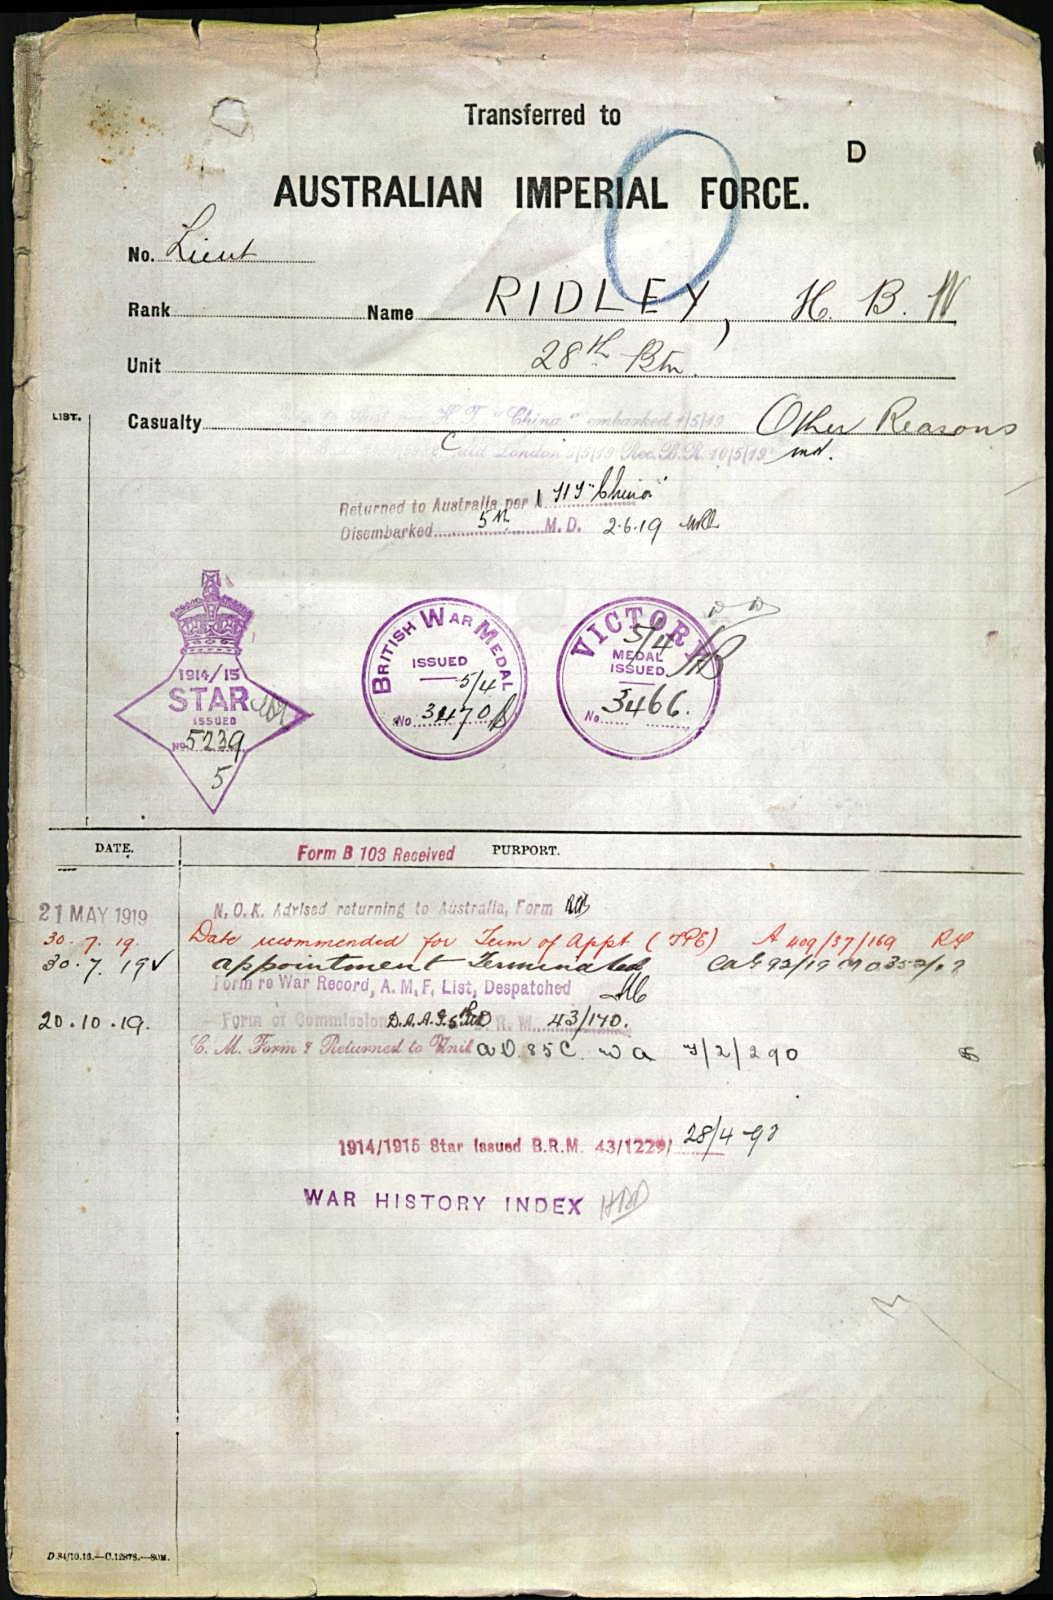 Transferred to
D
AUSTRALIAN IMPERIAL FORCE.
No. Lieut
Rank Name RIDLEY, H. B. W
Unit 28th Btn.
LIST.
Casualty Other Reasons
H.T. "China" embarked 1/5/19
London 5/5/19 Rec. B.R. 10/5/19
Returned to Australia per "China"
Disembarked 5th M.D. 2.6.19
1914/15
STAR
ISSUED
No. 5239
5
BRITISH WAR MEDAL
ISSUED
5/4
No. 3470
VICTORY
5/4
MEDAL
ISSUED
No. 3466.
DATE. Form B 103 Received PURPORT.
21 MAY 1919 N.O.K. Advised returning to Australia, Form
30.7.19. Date recommended for Term of Appt (TPE) A 409/37/169
30.7.19 appointment Terminated
Form re War Record, A.M.F. List, Despatched
20.10.19. Form of Commission D.A.A.G. 5 R.M. 43/170.
C. M. Form & Returned to Unit 85C. W A 7/2/290
1914/1915 Star Issued B.R.M. 43/1229/ 28/4
WAR HISTORY INDEX
D.84/10.16.—C.12878.—80M.